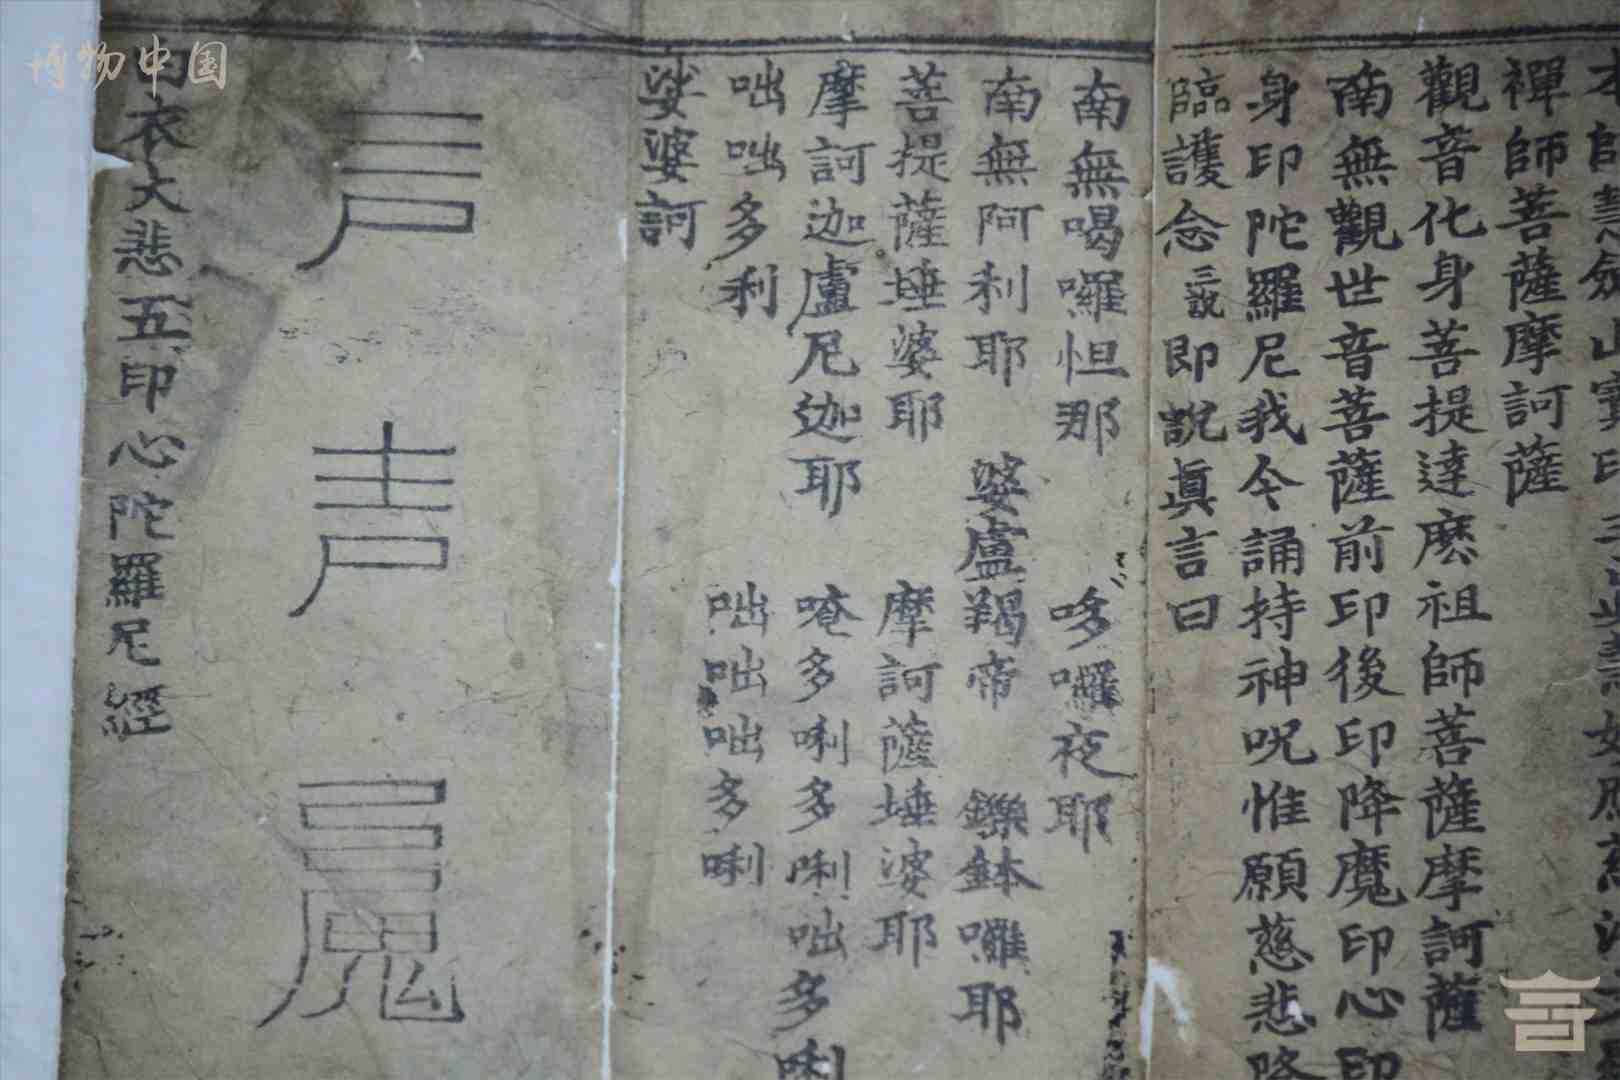 博物中国
禪師菩薩摩訶薩
觀音化身菩提達麽祖師菩薩摩訶薩
南無觀世音菩薩前印後印降魔印心印
身印陀羅尼我今誦持神呪惟願慈悲降
臨護念三說即說眞言曰
南無喝囉怛那 哆囉夜耶
南無阿利耶 婆盧羯帝 鑠鉢囉耶
菩提薩埵婆耶 摩訶薩埵婆耶
摩訶迦盧尼迦耶 唵多唎多唎咄多唎
咄咄多利 咄咄咄多唎
娑婆訶
衣大悲五印心陀羅尼經